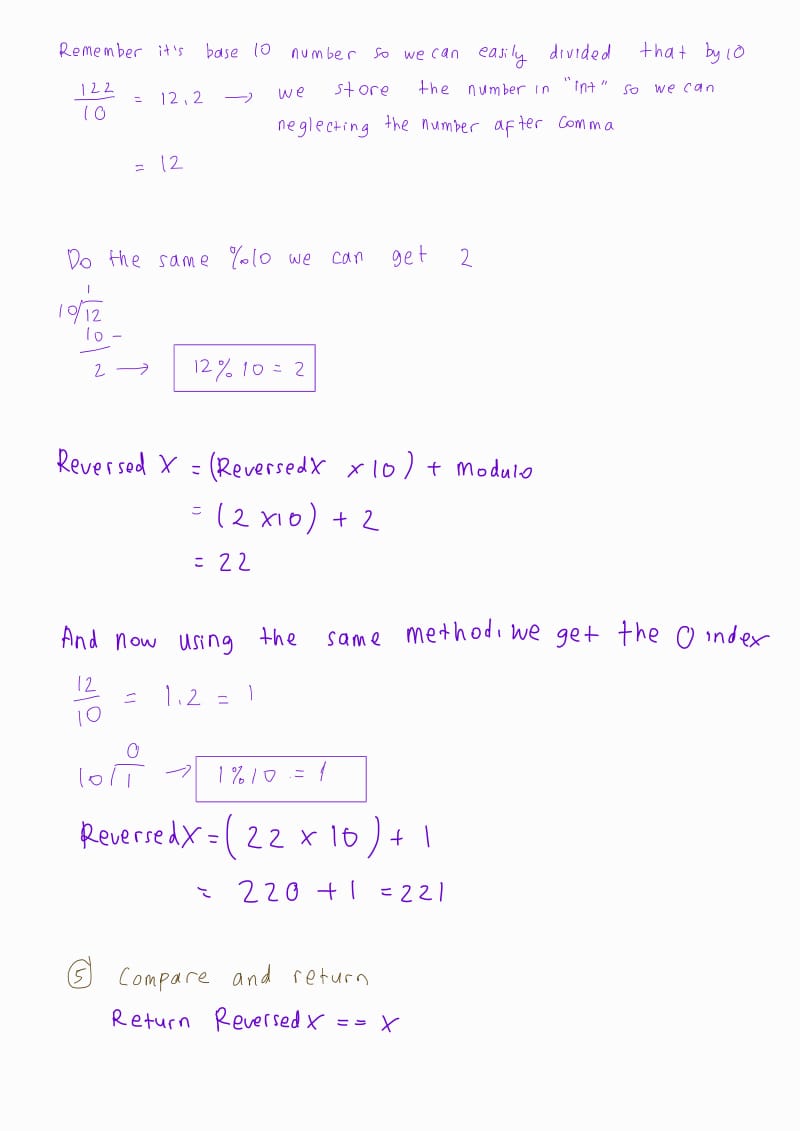 Remember it's base 10 number so we can easily divided that by 10
122/10 = 12,2 → we store the number in "int" so we can
neglecting the number after comma
= 12
Do the same %10 we can get 2
1
10/12
10 -
2 → 12 % 10 = 2
Reversed X = (ReversedX x 10) + modulo
= (2 x10) + 2
= 22
And now using the same method, we get the 0 index
12/10 = 1.2 = 1
0
10/1 → 1 % 10 = 1
ReversedX = (22 x 10) + 1
= 220 + 1 = 221
5 Compare and return
Return ReversedX == X